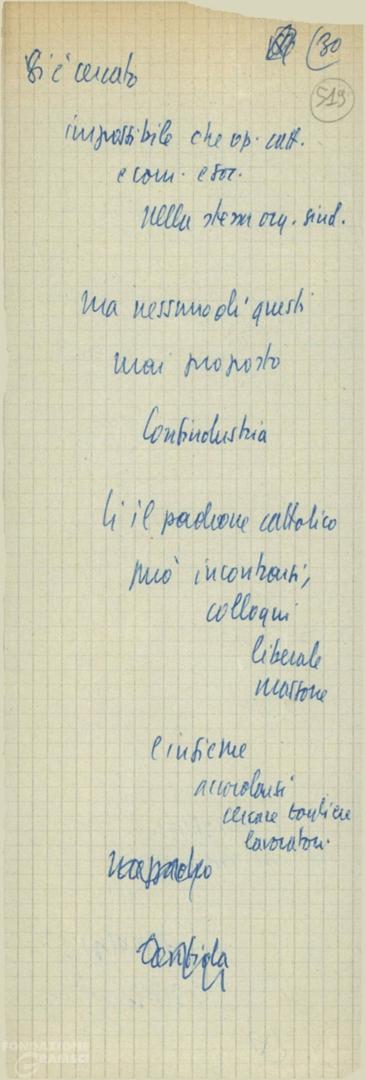 30
519
Si è cercato
impossibile che op. catt.
e com. e soc.
nella stessa org. sind.
ma nessuno di questi
mai proposto
Confindustria
Lì il padrone cattolico
può incontrarsi,
colloqui
liberale
massone
e insieme
accordarsi
cercare
lavoratori.
FONDAZIONE
GRAMSCI